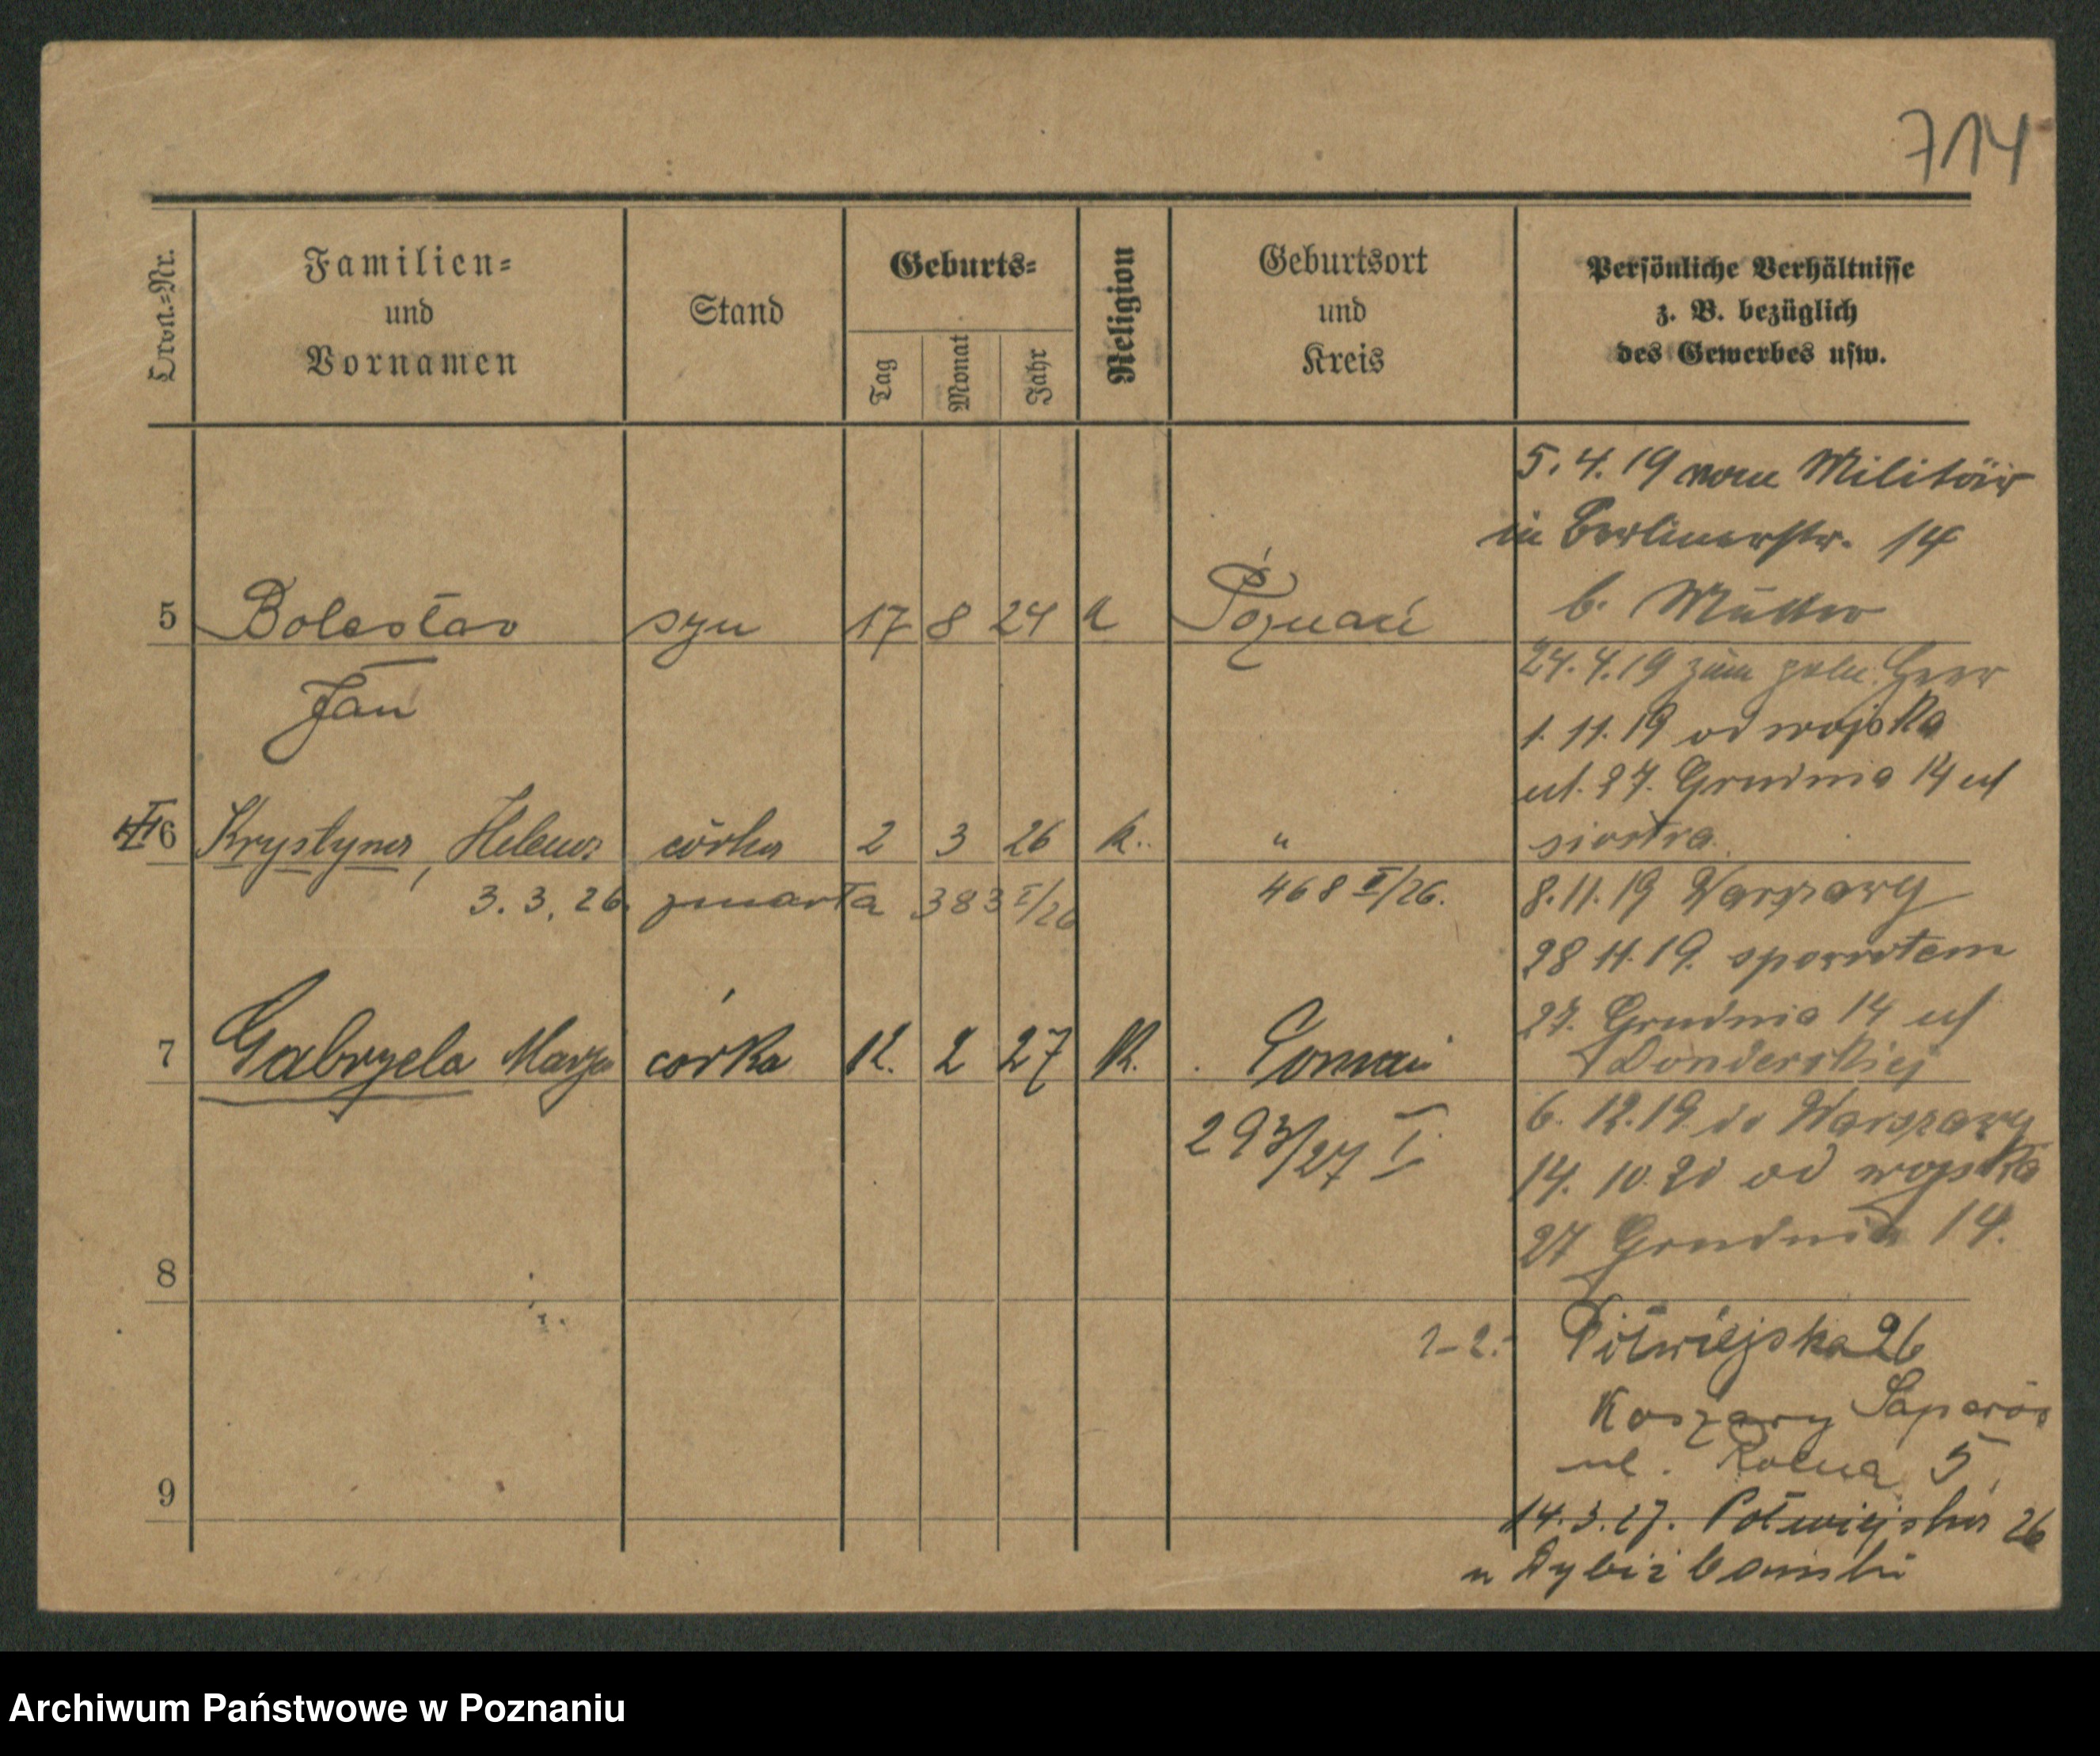 714
Ordn.=Nr.
Familien=
und
Vornamen
Stand
Geburts=
Tag
Monat
Jahr
Religion
Geburtsort
und
Kreis
Persönliche Verhältnisse
z. B. bezüglich
des Gewerbes usw.
5.4.19 vom Militär
in Berlinerstr. 14
b. Mutter
5 Bolesław syn 17 8 24 k Poznań
Jan
24.4.19 zum poln. Heer
1.11.19 od wojska
ul. 27. Grudnia 14 u
siostra.
6 Krystyna, Helena córka 2 3 26 k. "
3.3.26. zmarła 383 I/26 468 II/26.
8.11.19 Warszawy
28 11.19. spowrotem
27. Grudnia 14 u
Donderskiej
7 Gabryela Marya córka 12. 2 27 k. Poznań
293/27 I.
6. 12.19. do Warszawy
14. 10. 20 od wojska
27 Grudnia 14.
8
1-2. Półwiejska 26
Koszary Saperów
ul. Rolna 5.
9
14.3.27. Półwiejska 26
u Dybizbański
Archiwum Państwowe w Poznaniu